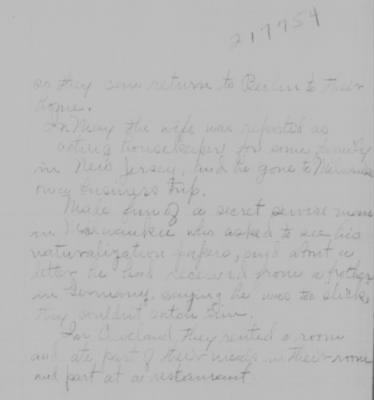 217754
so they can return to Berlin to their
home.
In May the wife was reported as
acting housekeeper for some family
in New Jersey, and he gone to Milwaukee
on a business trip.
Made fun of a secret service man
in Milwaukee who asked to see his
naturalization papers, and about a
letter he had received from a brother
in Germany saying he was too slick,
they couldn't catch him.
In Cleveland they rented a room
and ate part of their meals in their room
and part at a restaurant